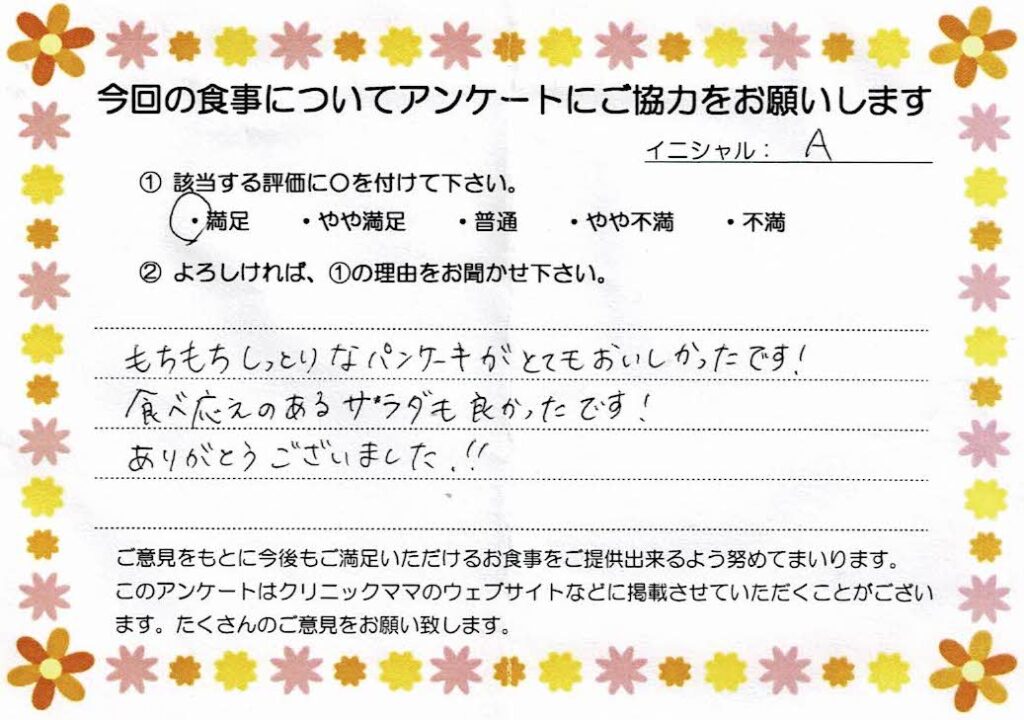 今回の食事についてアンケートにご協力をお願いします
イニシャル： A
① 該当する評価に〇を付けて下さい。
・満足 ・やや満足 ・普通 ・やや不満 ・不満
② よろしければ、①の理由をお聞かせ下さい。
もちもちしっとりなパンケーキがとてもおいしかったです！
食べ応えのあるサラダも良かったです！
ありがとうございました！！
ご意見をもとに今後もご満足いただけるお食事をご提供出来るよう努めてまいります。
このアンケートはクリニックママのウェブサイトなどに掲載させていただくことがござい
ます。たくさんのご意見をお願い致します。